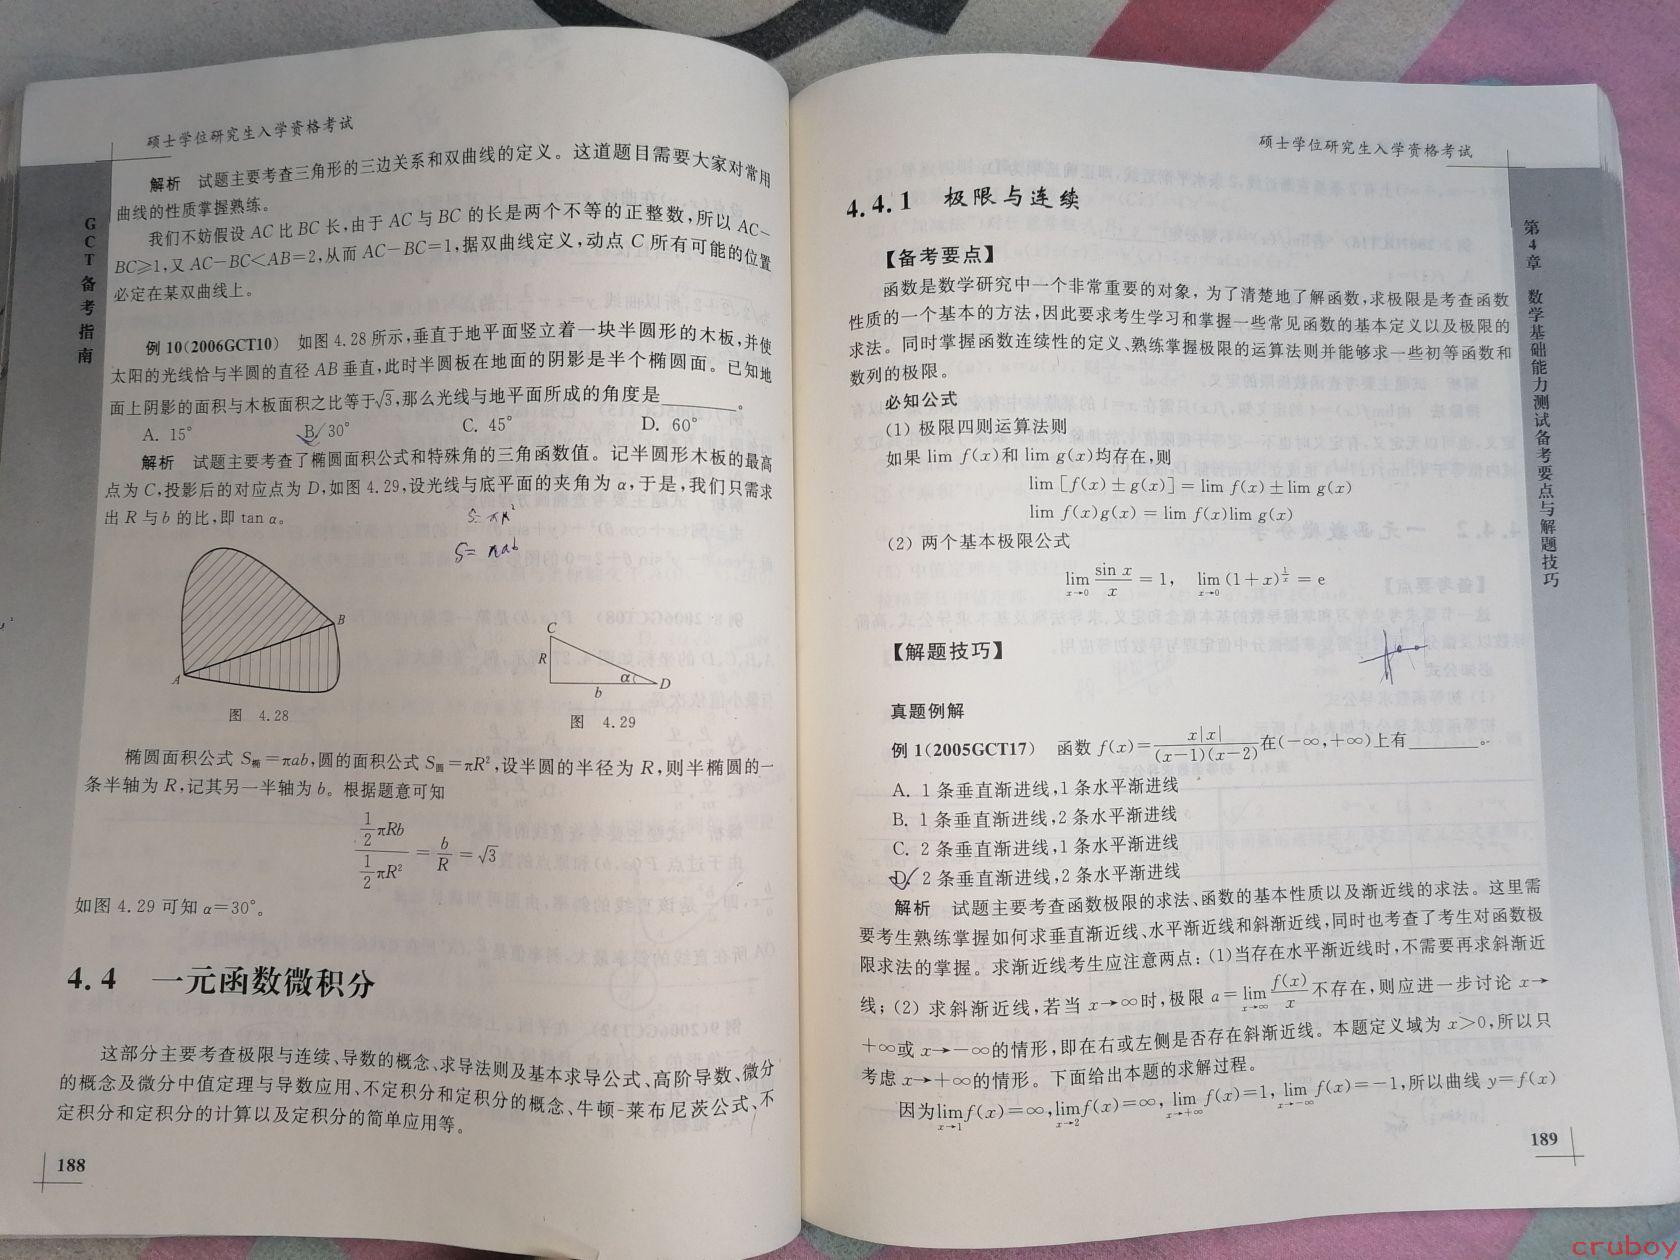 硕士学位研究生入学资格考试
GCT备考指南
解析 试题主要考查三角形的三边关系和双曲线的定义。这道题目需要大家对常用
曲线的性质掌握熟练。
我们不妨假设 AC 比 BC 长,由于 AC 与 BC 的长是两个不等的正整数,所以 AC-
BC≥1,又 AC-BC<AB=2,从而 AC-BC=1,据双曲线定义,动点 C 所有可能的位置
必定在某双曲线上。
例 10(2006GCT10) 如图 4.28 所示,垂直于地平面竖立着一块半圆形的木板,并使
太阳的光线恰与半圆的直径 AB 垂直,此时半圆板在地面的阴影是半个椭圆面。已知地
面上阴影的面积与木板面积之比等于√3,那么光线与地平面所成的角度是______。
A. 15° B. 30° C. 45° D. 60°
解析 试题主要考查了椭圆面积公式和特殊角的三角函数值。记半圆形木板的最高
点为 C,投影后的对应点为 D,如图 4.29,设光线与底平面的夹角为 α,于是,我们只需求
出 R 与 b 的比,即 tan α。
S=πR²
S=πab
A
B
C
R
α
D
b
图 4.28
图 4.29
椭圆面积公式 S椭=πab,圆的面积公式 S圆=πR²,设半圆的半径为 R,则半椭圆的一
条半轴为 R,记其另一半轴为 b。根据题意可知
(1/2 πRb)/(1/2 πR²) = b/R = √3
如图 4.29 可知 α=30°。
4.4 一元函数微积分
这部分主要考查极限与连续、导数的概念、求导法则及基本求导公式、高阶导数、微分
的概念及微分中值定理与导数应用、不定积分和定积分的概念、牛顿-莱布尼茨公式、不
定积分和定积分的计算以及定积分的简单应用等。
188
硕士学位研究生入学资格考试
第4章 数学基础能力测试备考要点与解题技巧
4.4.1 极限与连续
【备考要点】
函数是数学研究中一个非常重要的对象，为了清楚地了解函数,求极限是考查函数
性质的一个基本的方法,因此要求考生学习和掌握一些常见函数的基本定义以及极限的
求法。同时掌握函数连续性的定义、熟练掌握极限的运算法则并能够求一些初等函数和
数列的极限。
必知公式
(1) 极限四则运算法则
如果 lim f(x)和 lim g(x)均存在,则
lim [f(x)±g(x)]=lim f(x)±lim g(x)
lim f(x)g(x)=lim f(x)lim g(x)
(2) 两个基本极限公式
lim x→0 sin x/x = 1, lim x→0 (1+x)^(1/x) = e
【解题技巧】
真题例解
例 1(2005GCT17) 函数 f(x)= x|x|/((x-1)(x-2)) 在(-∞,+∞)上有______。
A. 1 条垂直渐进线,1 条水平渐进线
B. 1 条垂直渐进线,2 条水平渐进线
C. 2 条垂直渐进线,1 条水平渐进线
D. 2 条垂直渐进线,2 条水平渐进线
解析 试题主要考查函数极限的求法、函数的基本性质以及渐近线的求法。这里需
要考生熟练掌握如何求垂直渐近线、水平渐近线和斜渐近线,同时也考查了考生对函数极
限求法的掌握。求渐近线考生应注意两点：(1)当存在水平渐近线时,不需要再求斜渐近
线；(2) 求斜渐近线,若当 x→∞时,极限 a=lim x→∞ f(x)/x 不存在,则应进一步讨论 x→
+∞或 x→-∞的情形,即在右或左侧是否存在斜渐近线。本题定义域为 x>0,所以只
考虑 x→+∞的情形。下面给出本题的求解过程。
因为lim x→1 f(x)=∞,lim x→2 f(x)=∞, lim x→+∞ f(x)=1, lim x→-∞ f(x)=-1,所以曲线 y=f(x)
189
cruboy